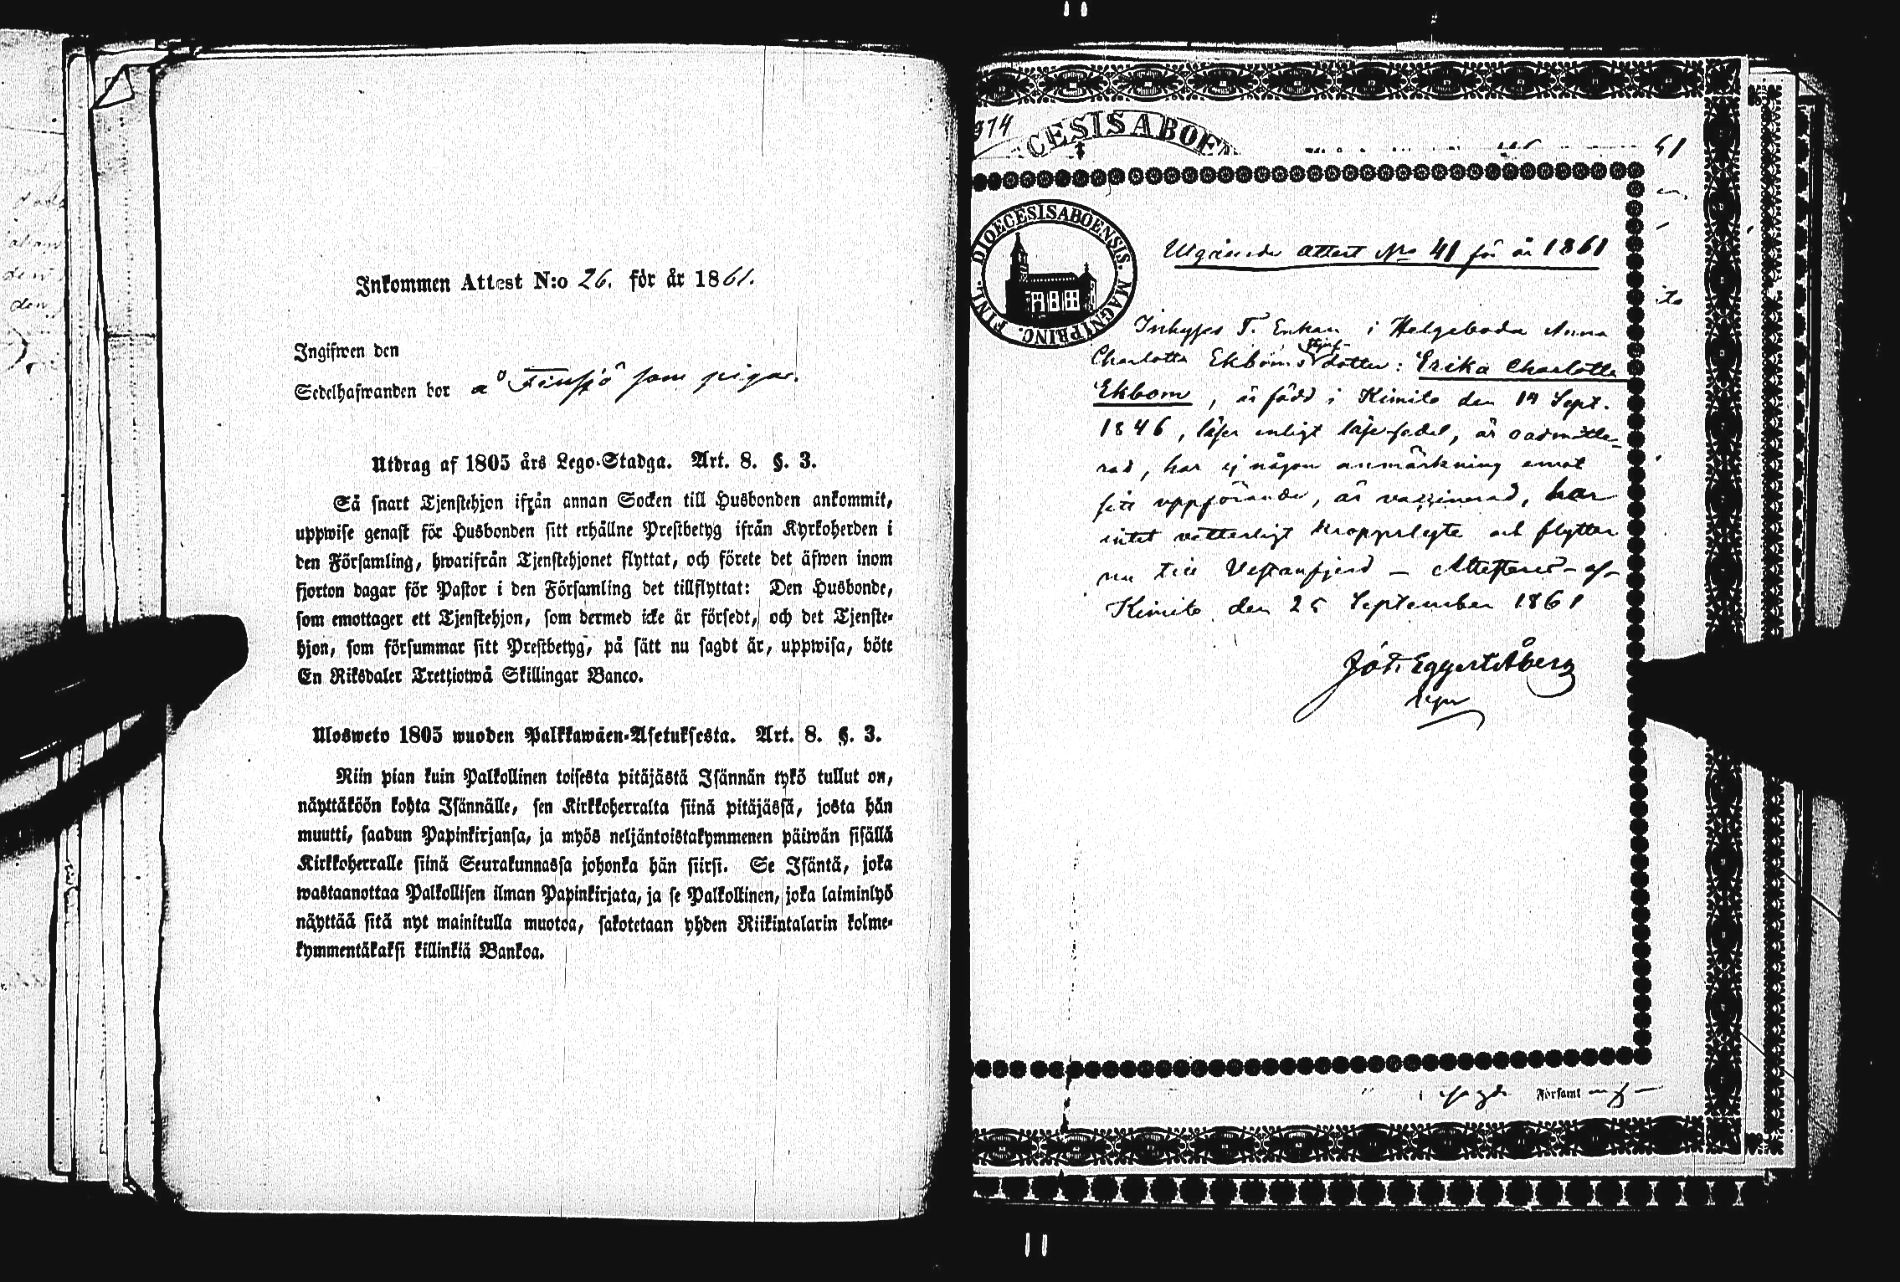 Inkommen Attest N:o 26. för år 1861.
Ingifwen den
Sedelhafwanden bor å Finsjö som piga.
Utdrag af 1805 års Lego-Stadga. Art. 8. §. 3.
Så snart Tjenstehjon ifrån annan Socken till Husbonden ankommit,
uppwise genast för Husbonden sitt erhållne Prestbetyg ifrån Kyrkoherden i
den Församling, hwarifrån Tjenstehjonet flyttat, och förete det äfwen inom
fjorton dagar för Pastor i den Församling det tillflyttat: Den Husbonde,
som emottager ett Tjenstehjon, som dermed icke är försedt, och det Tjenste-
hjon, som försummar sitt Prestbetyg, på sätt nu sagdt är, uppwisa, böte
En Riksdaler Trettiotwå Skillingar Banco.
Ulosweto 1805 wuoden Palkkawäen-Asetuksesta. Art. 8. §. 3.
Niin pian kuin Palkollinen toisesta pitäjästä Isännän tykö tullut on,
näyttäköön kohta Isännälle, sen Kirkkoherralta siinä pitäjässä, josta hän
muutti, saadun Papinkirjansa, ja myös neljäntoistakymmenen päiwän sisällä
Kirkkoherralle siinä Seurakunnassa johonka hän siirsi. Se Isäntä, joka
wastaanottaa Palkollisen ilman Papinkirjata, ja se Palkollinen, joka laiminlyö
näyttää sitä nyt mainitulla muotoa, sakotetaan yhden Riikintalarin kolme-
kymmentäkaksi killinkiä Bankoa.
374
CESIS ABOE
61
DIOECESIS ABOENSIS. MAGNI PRINC. FINL.
Utgående attest No 41 för år 1861
Inhyses T. Enkan i Helgeboda Anna
Charlotta Ekboms styf-dotter: Erika Charlotta
Ekbom, är född i Kimito den 14 Sept.
1846, läser enligt läse-sedel, är oadmitte-
rad, har ej någon anmärkning emot
sitt uppförande, är vaccinerad, har
intet vetterligt kroppslyte och flyttar
nu till Vestanfjerd — Attesteras af
Kimito den 25 September 1861
Joh. Eggert Åberg
Församl